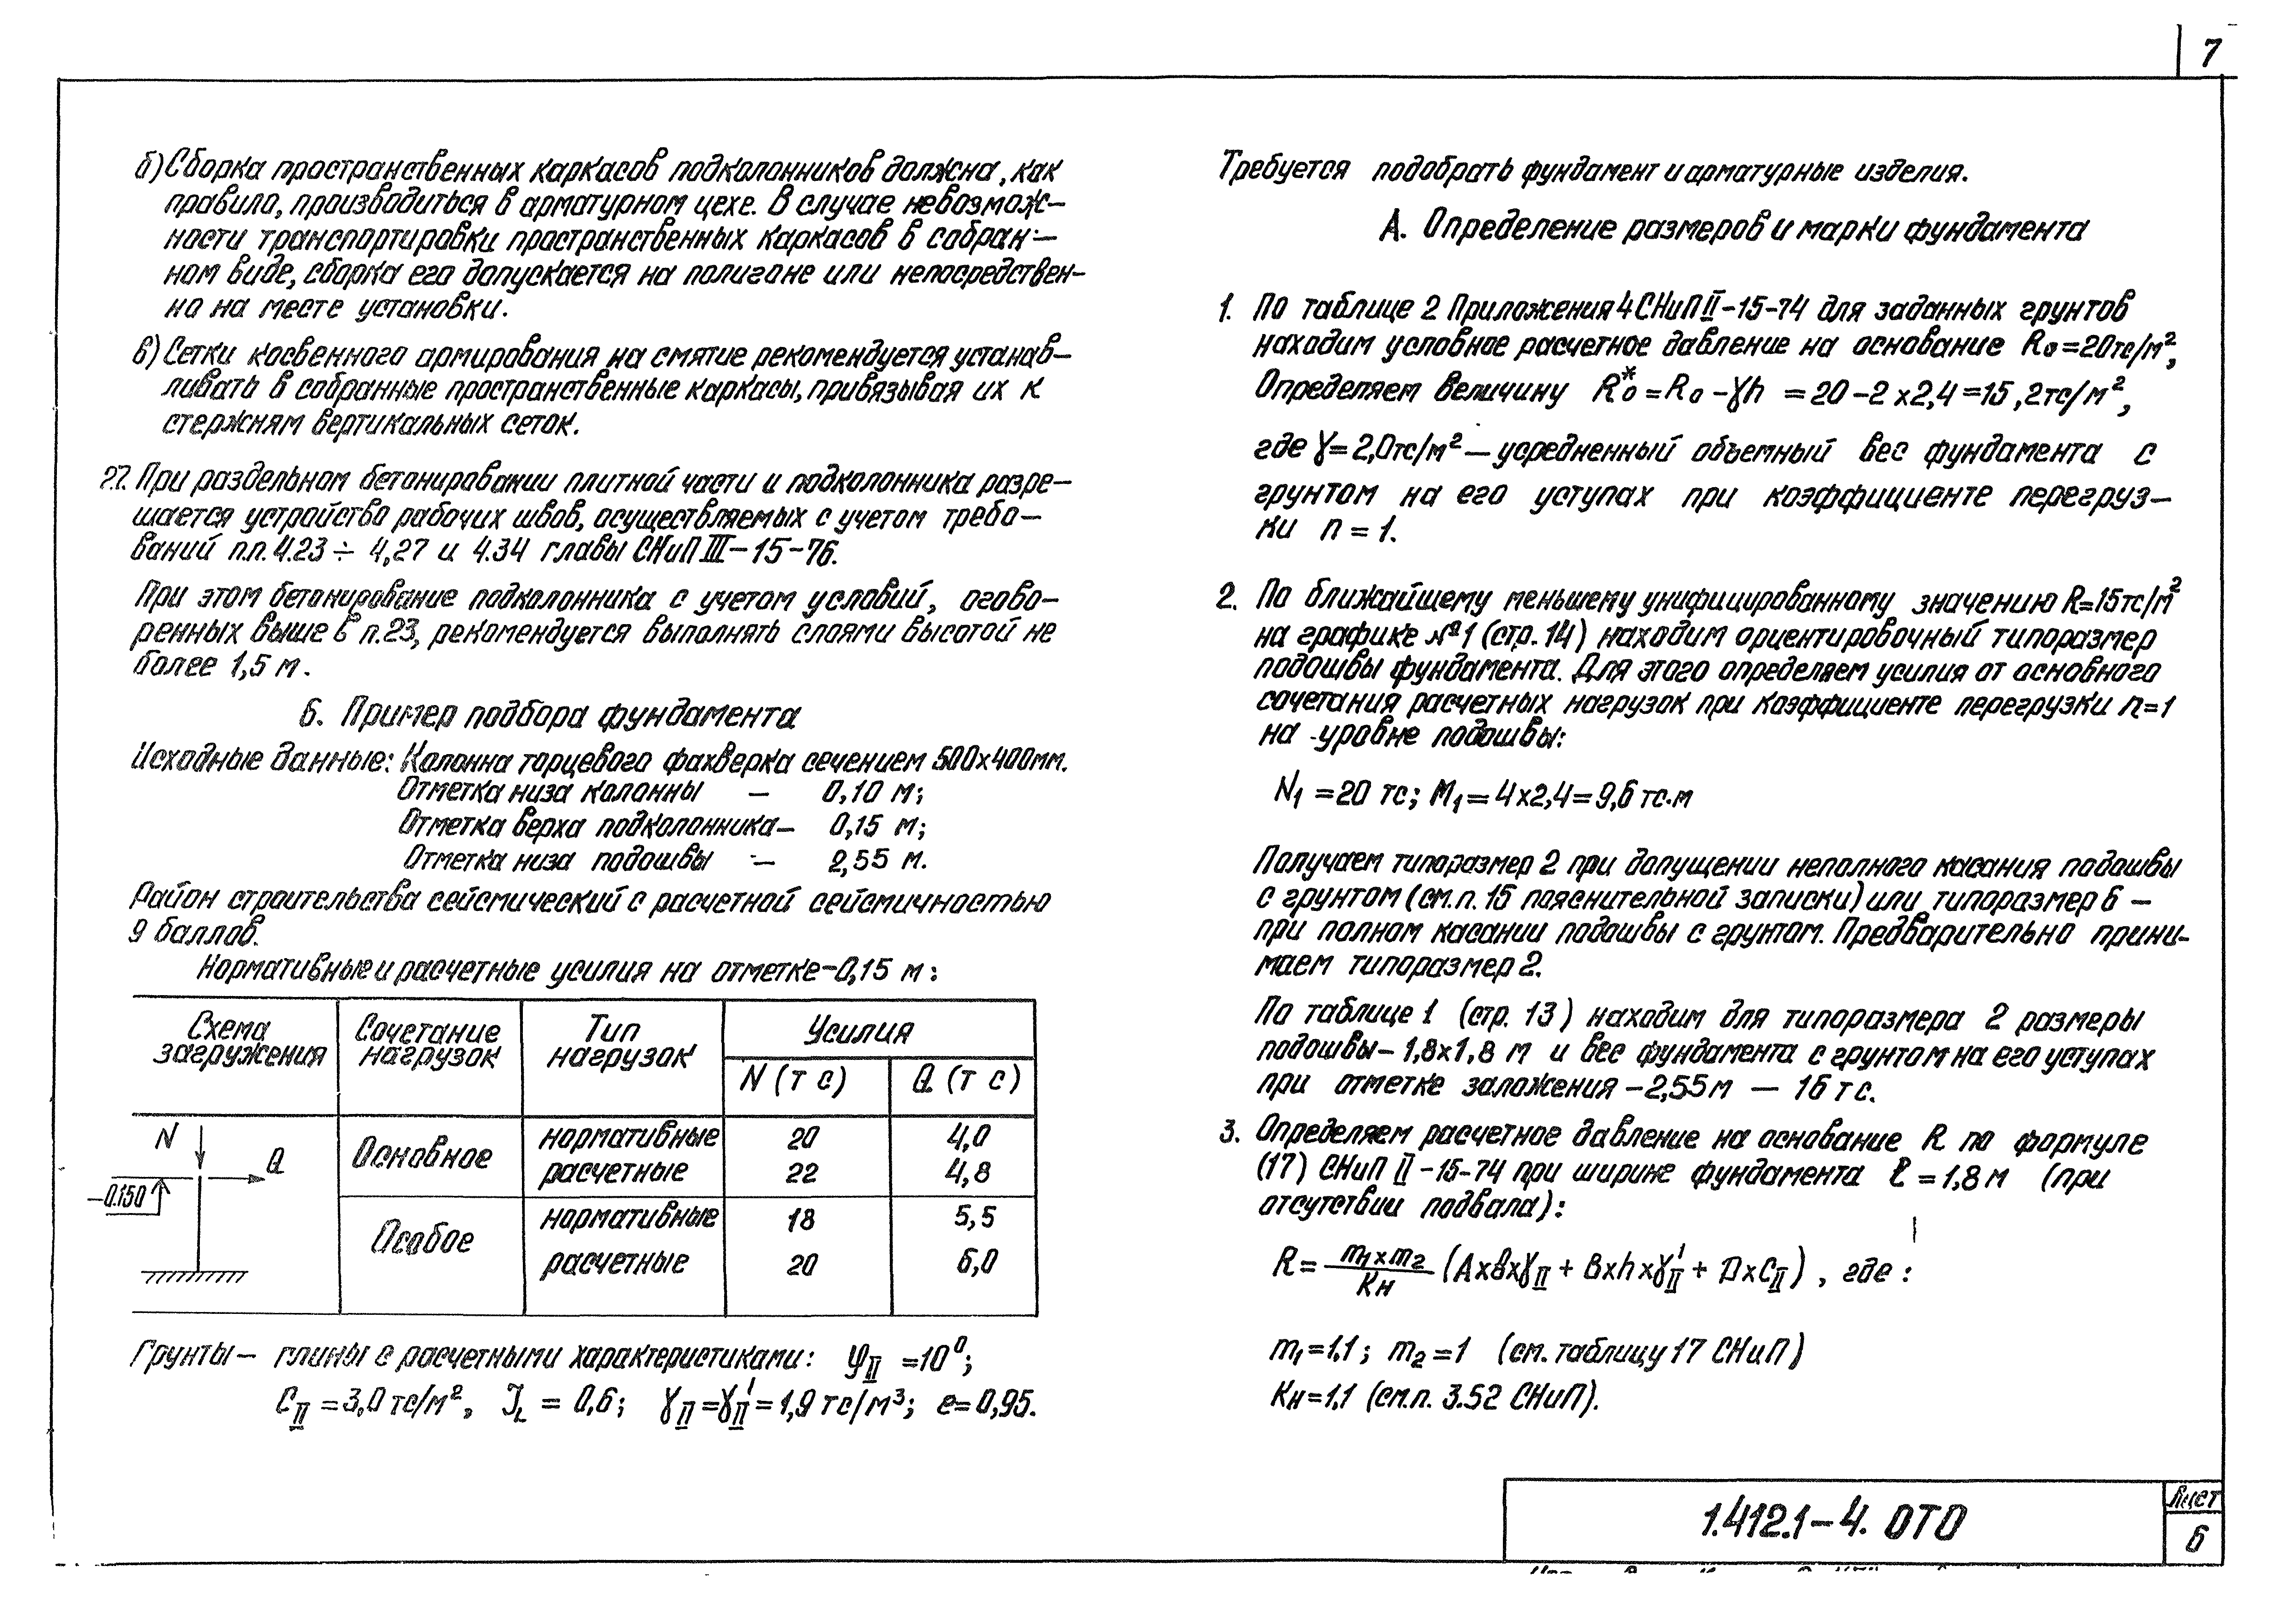 7
б) Сборка пространственных каркасов подколонников должна, как
правило, производиться в арматурном цехе. В случае невозмож-
ности транспортировки пространственных каркасов в собран-
ном виде, сборка его допускается на полигоне или непосредствен-
но на месте установки.
в) Сетки косвенного армирования на смятие рекомендуется устанав-
ливать в собранные пространственные каркасы, привязывая их к
стержням вертикальных сеток.
27. При раздельном бетонировании плитной части и подколонника разре-
шается устройство рабочих швов, осуществляемых с учетом требо-
ваний п.п. 4.23 ÷ 4,27 и 4.34 главы СНиП III-15-76.
При этом бетонирование подколонника с учетом условий, огово-
ренных выше в п.23, рекомендуется выполнять слоями высотой не
более 1,5 м.
6. Пример подбора фундамента
Исходные данные: Колонна торцевого фахверка сечением 500х400мм.
Отметка низа колонны — 0,10 м;
Отметка верха подколонника — 0,15 м;
Отметка низа подошвы — 2,55 м.
Район строительства сейсмический с расчетной сейсмичностью
9 баллов.
Нормативные и расчетные усилия на отметке -0,15 м:
Схема загружения Сочетание нагрузок Тип нагрузок Усилия
N (тс) Q (тс)
N Q -0.150
Основное нормативные 20 4,0
расчетные 22 4,8
Особое нормативные 18 5,5
расчетные 20 6,0
Грунты — глины с расчетными характеристиками: φII = 10°;
CII = 3,0 тс/м², JL = 0,6; γII = γ'II = 1,9 тс/м³; е = 0,95.
Требуется подобрать фундамент и арматурные изделия.
А. Определение размеров и марки фундамента
1. По таблице 2 Приложения 4 СНиП II-15-74 для заданных грунтов
находим условное расчетное давление на основание R₀=20тс/м²,
Определяем величину R₀* = R₀ - γh = 20 - 2х2,4 = 15,2тс/м²,
где γ = 2,0тс/м² — усредненный объемный вес фундамента с
грунтом на его уступах при коэффициенте перегруз-
ки n = 1.
2. По ближайшему меньшему унифицированному значению R=15тс/м²
на графике №1 (стр. 14) находим ориентировочный типоразмер
подошвы фундамента. Для этого определяем усилия от основного
сочетания расчетных нагрузок при коэффициенте перегрузки n=1
на уровне подошвы:
N₁ = 20 тс; М₁ = 4х2,4 = 9,6 тс.м
Получаем типоразмер 2 при допущении неполного касания подошвы
с грунтом (см.п. 15 пояснительной записки) или типоразмер 6 —
при полном касании подошвы с грунтом. Предварительно прини-
маем типоразмер 2.
По таблице 1 (стр. 13) находим для типоразмера 2 размеры
подошвы - 1,8х1,8 м и вес фундамента с грунтом на его уступах
при отметке заложения -2,55м — 16 тс.
3. Определяем расчетное давление на основание R по формуле
(17) СНиП II-15-74 при ширине фундамента ℓ = 1,8 м (при
отсутствии подвала):
R = m₁хm₂/Kн (AхвхγII + Bхhхγ'II + DхCII), где:
m₁=1,1; m₂=1 (см. таблицу 17 СНиП)
Kн=1,1 (см.п. 3.52 СНиП).
1.412.1-4. ОТО
Лист
6